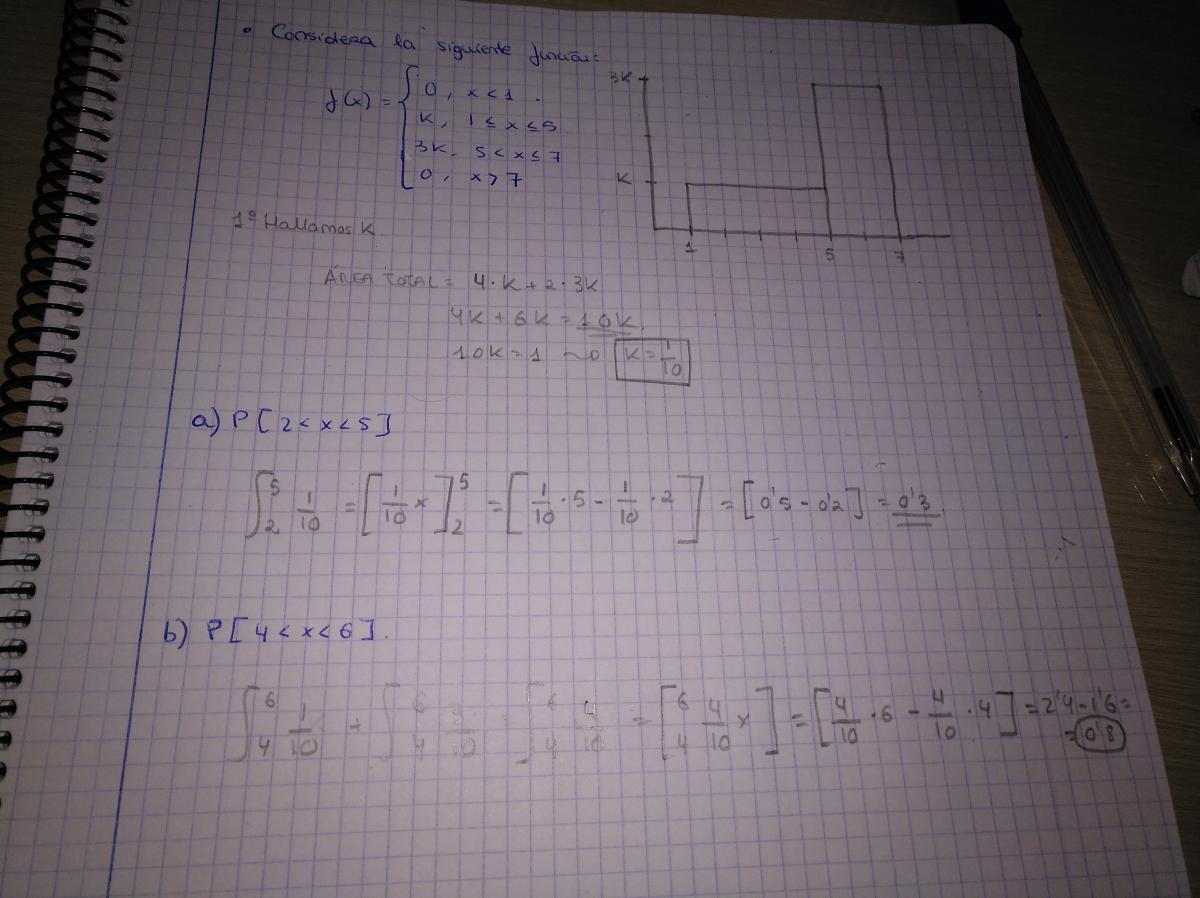 • Considera la siguiente función:
f(x) = { 0, x < 1.
K, 1 ≤ x ≤ 5
3K, 5 < x ≤ 7
0, x > 7
3K
K
1 5 7
1º Hallamos K
ÁREA TOTAL = 4·K + 2·3K
4K + 6K = 10K.
10K = 1 ~o K = 1/10
a) P [2 < x < 5]
∫₂⁵ 1/10 = [1/10 x]₂⁵ = [1/10 · 5 - 1/10 · 2] = [0'5 - 0'2] = 0'3
b) P [4 < x < 6].
∫₄⁶ 1/10 + ∫₄⁶ 3/10 = ∫₄⁶ 4/10 = [⁶₄ 4/10 x] = [4/10 · 6 - 4/10 · 4] = 2'4 - 1'6 =
= 0'8